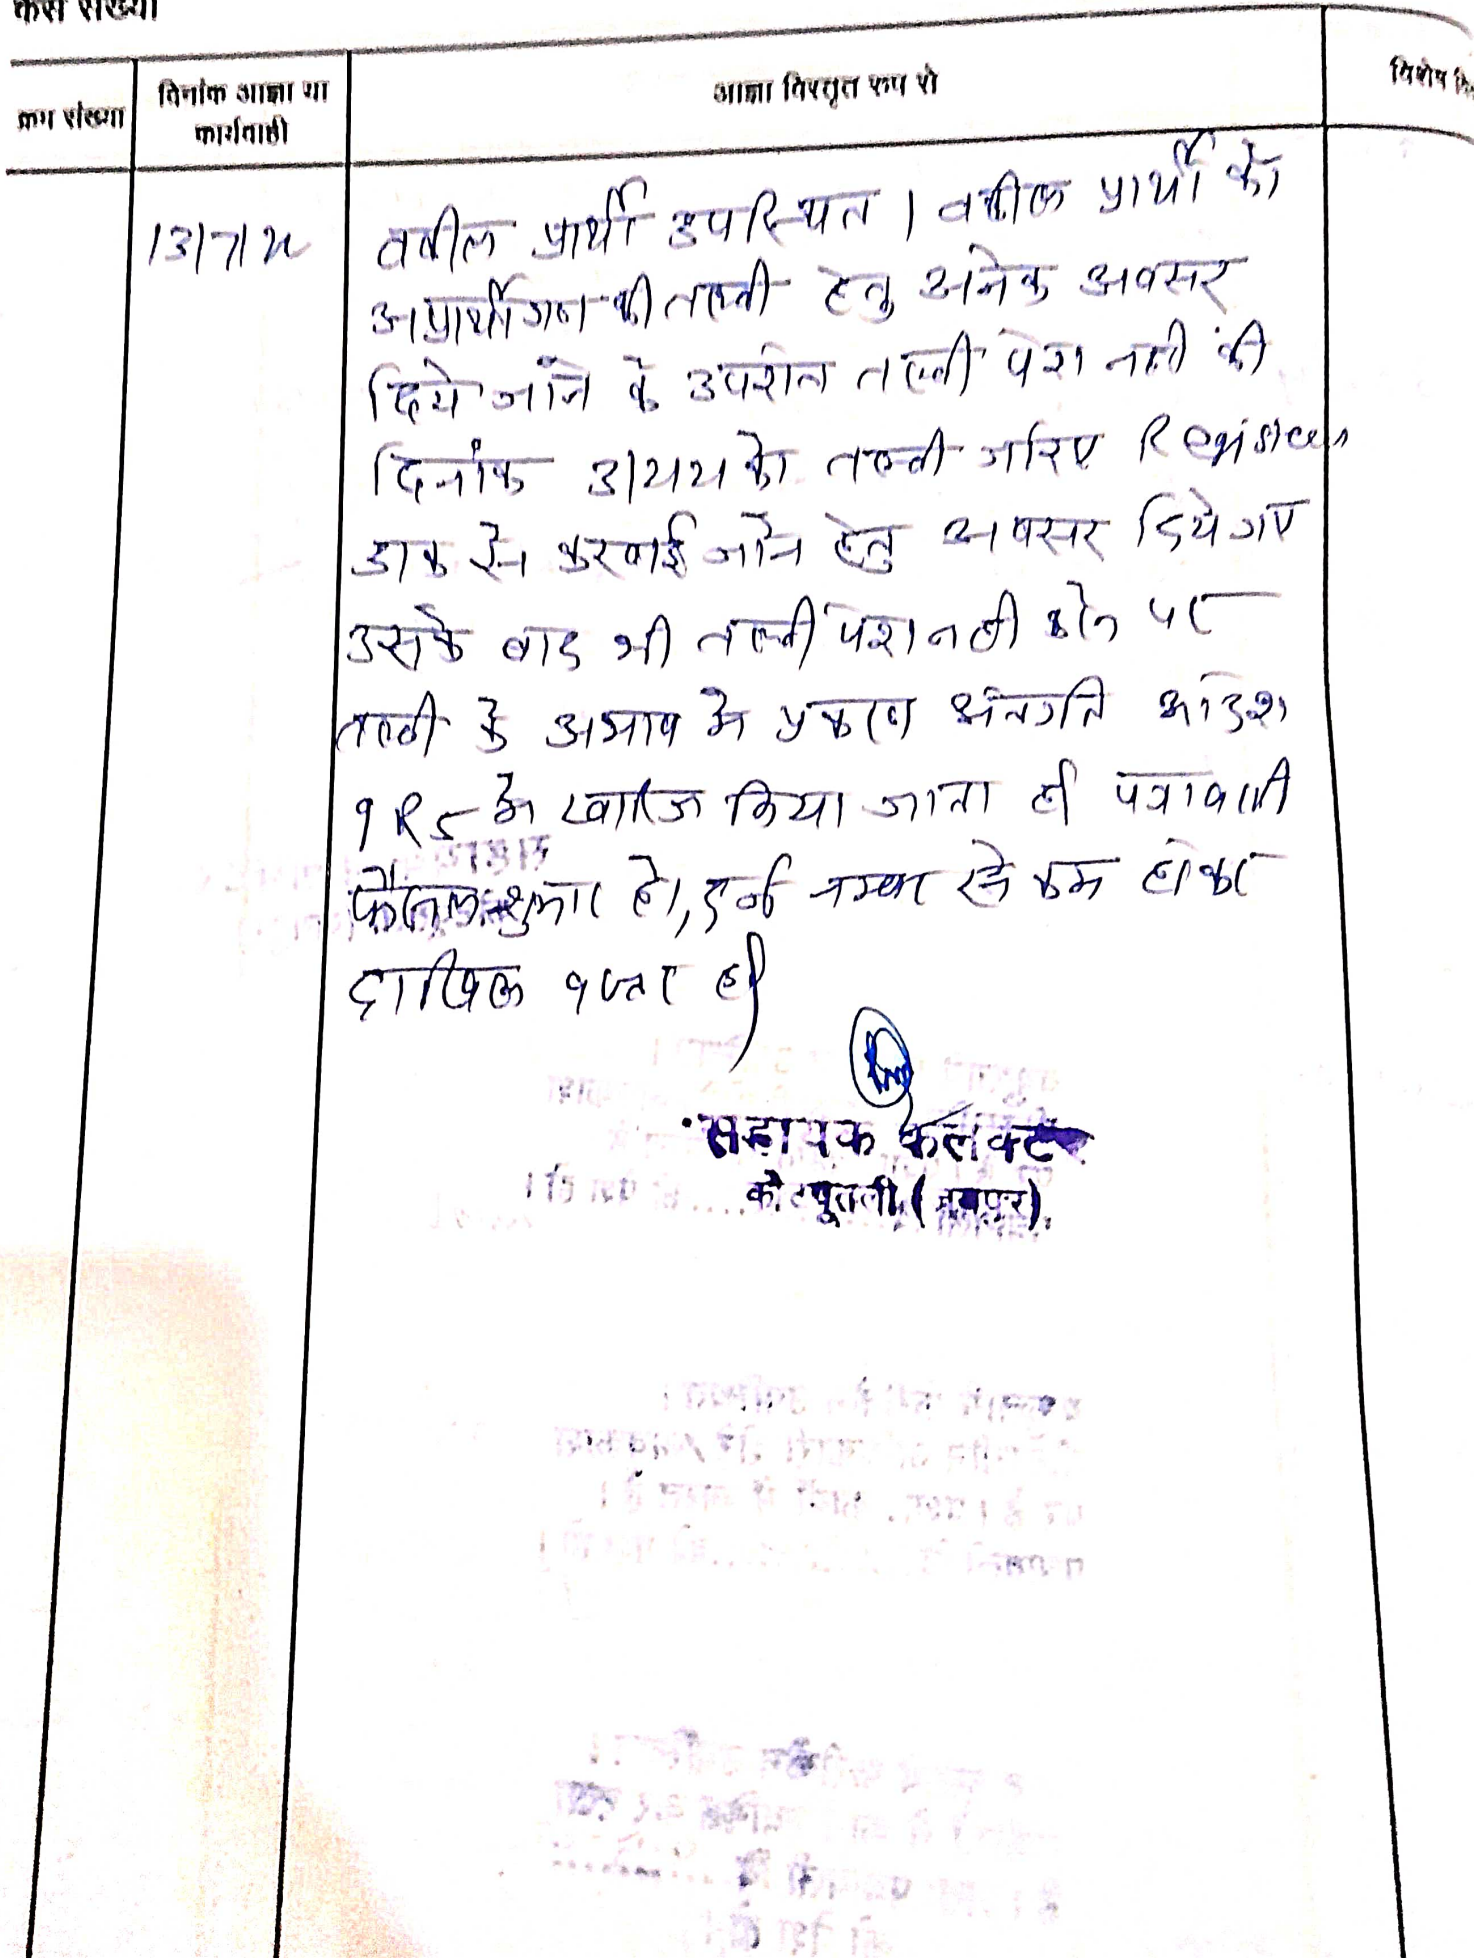 केस संख्या
क्रम संख्या
दिनांक आज्ञा या
कार्यवाही
आज्ञा विस्तृत रूप से
विशेष
13/7/22
वकील प्रार्थी उपस्थित । वकील प्रार्थी को
अप्रार्थीगण की तलबी हेतु अनेक अवसर
दिये जाने के उपरांत तलबी पेश नही की
दिनांक को तलबी जरिए
डाक से करवाई जाने हेतु अवसर दिये गए
उसके बाद भी तलबी पेश नही होने पर
तलबी के अभाव मे प्रकरण अंतर्गत आदेश
9 R 5 मे खारिज किया जाता है। पत्रावली
फैसल शुमार हो, दर्ज नम्बर से कम होकर
दाखिल दफ्तर हो।
सहायक कलेक्टर
कोटपूतली (जयपुर)